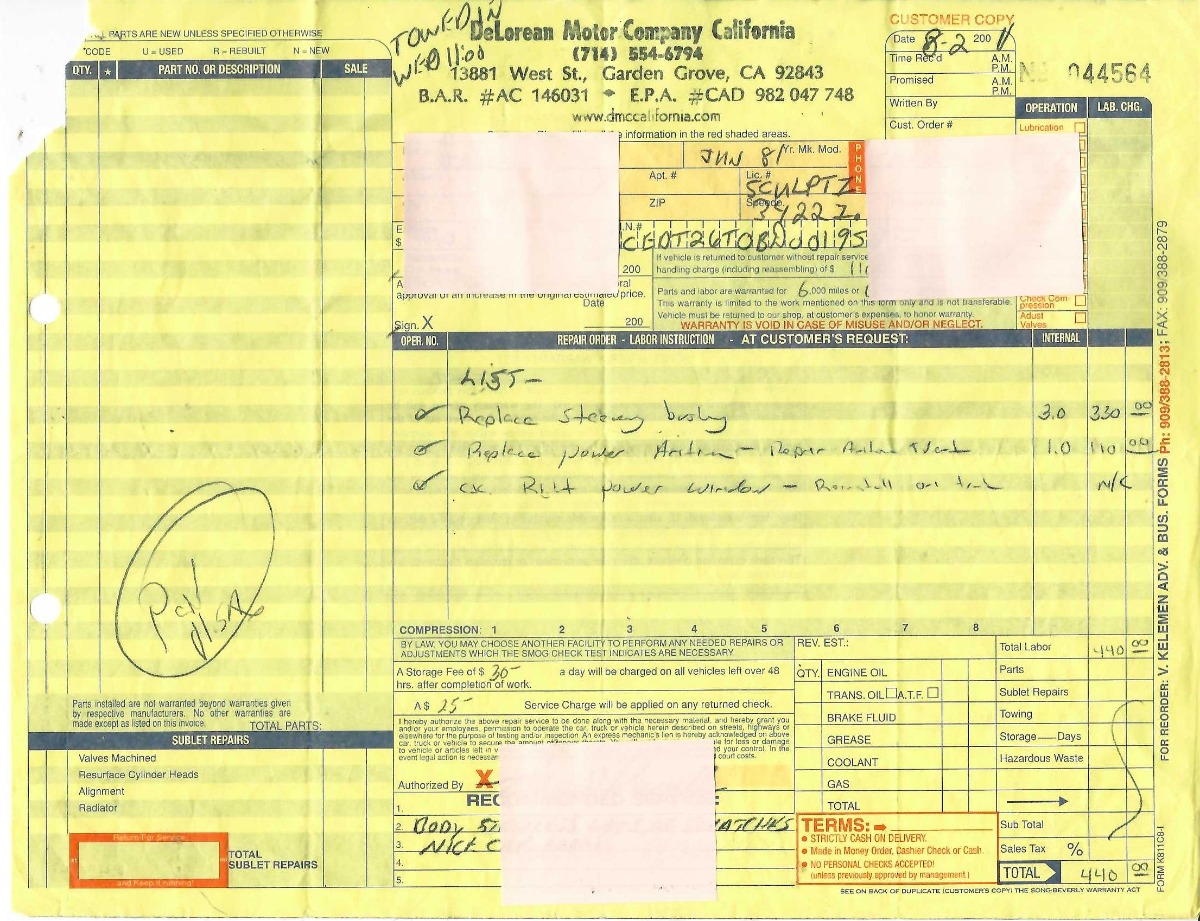 PARTS ARE NEW UNLESS SPECIFIED OTHERWISE
CODE U = USED R = REBUILT N = NEW
QTY. ★ PART NO. OR DESCRIPTION SALE
TOWED IN
WED 11:00
DeLorean Motor Company California
(714) 554-6794
13881 West St., Garden Grove, CA 92843
B.A.R. #AC 146031 E.P.A. #CAD 982 047 748
www.dmccalifornia.com
information in the red shaded areas.
CUSTOMER COPY
Date 8-2 200
Time Rec'd A.M. P.M.
Promised A.M. P.M.
Written By
Cust. Order #
044564
OPERATION LAB. CHG.
Lubrication
JUN 81 Yr. Mk. Mod.
PHONE
Apt. # Lic. #
SCULPTZ
ZIP Speedo.
34222
CEDT26T0BD00195
If vehicle is returned to customer without repair service
200 handling charge (including reassembling) of $
approval of an increase in the original estimated price.
Parts and labor are warranted for 6,000 miles or
This warranty is limited to the work mentioned on this form only and is not transferable.
Vehicle must be returned to our shop, at customer's expenses, to honor warranty.
WARRANTY IS VOID IN CASE OF MISUSE AND/OR NEGLECT.
Date
Sign. X 200
Check Compression
Adjust Valves
OPER. NO. REPAIR ORDER - LABOR INSTRUCTION - AT CUSTOMER'S REQUEST: INTERNAL
LIST-
Replace steering bushing 3.0 330 00
Replace power Antenna - Repair 1.0 110 00
Right power window - N/C
Pd
VISA
COMPRESSION: 1 2 3 4 5 6 7 8
BY LAW, YOU MAY CHOOSE ANOTHER FACILITY TO PERFORM ANY NEEDED REPAIRS OR
ADJUSTMENTS WHICH THE SMOG CHECK TEST INDICATES ARE NECESSARY.
A Storage Fee of $ 30- a day will be charged on all vehicles left over 48
hrs. after completion of work.
A $ 25- Service Charge will be applied on any returned check.
I hereby authorize the above repair service to be done along with the necessary material, and hereby grant you
and/or your employees, permission to operate the car, truck or vehicle herein described on streets, highways or
elsewhere for the purpose of testing and/or inspection. An express mechanic's lien is hereby acknowledged on above
car, truck or vehicle to secure the amount of for loss or damage
to vehicle or articles left in your control. In the
event legal action is necessary court costs.
Authorized By X
1.
2. BODY
3. NICK
4.
5.
REV. EST.:
QTY. ENGINE OIL
TRANS. OIL A.T.F.
BRAKE FLUID
GREASE
COOLANT
GAS
TOTAL
TERMS:
STRICTLY CASH ON DELIVERY.
Made in Money Order, Cashier Check or Cash.
NO PERSONAL CHECKS ACCEPTED!
(unless previously approved by management)
Total Labor 440 00
Parts
Sublet Repairs
Towing
Storage—Days
Hazardous Waste
Sub Total
Sales Tax %
TOTAL 440 00
SEE ON BACK OF DUPLICATE (CUSTOMER'S COPY) THE SONG-BEVERLY WARRANTY ACT
Parts installed are not warranted beyond warranties given
by respective manufacturers. No other warranties are
made except as listed on this invoice. TOTAL PARTS:
SUBLET REPAIRS
Valves Machined
Resurface Cylinder Heads
Alignment
Radiator
Return For Service
and Keep it running!
TOTAL
SUBLET REPAIRS
FOR REORDER: V. KELEMEN ADV. & BUS. FORMS Ph: 909/388-2813; FAX: 909/388-2879
FORM K811C8-I